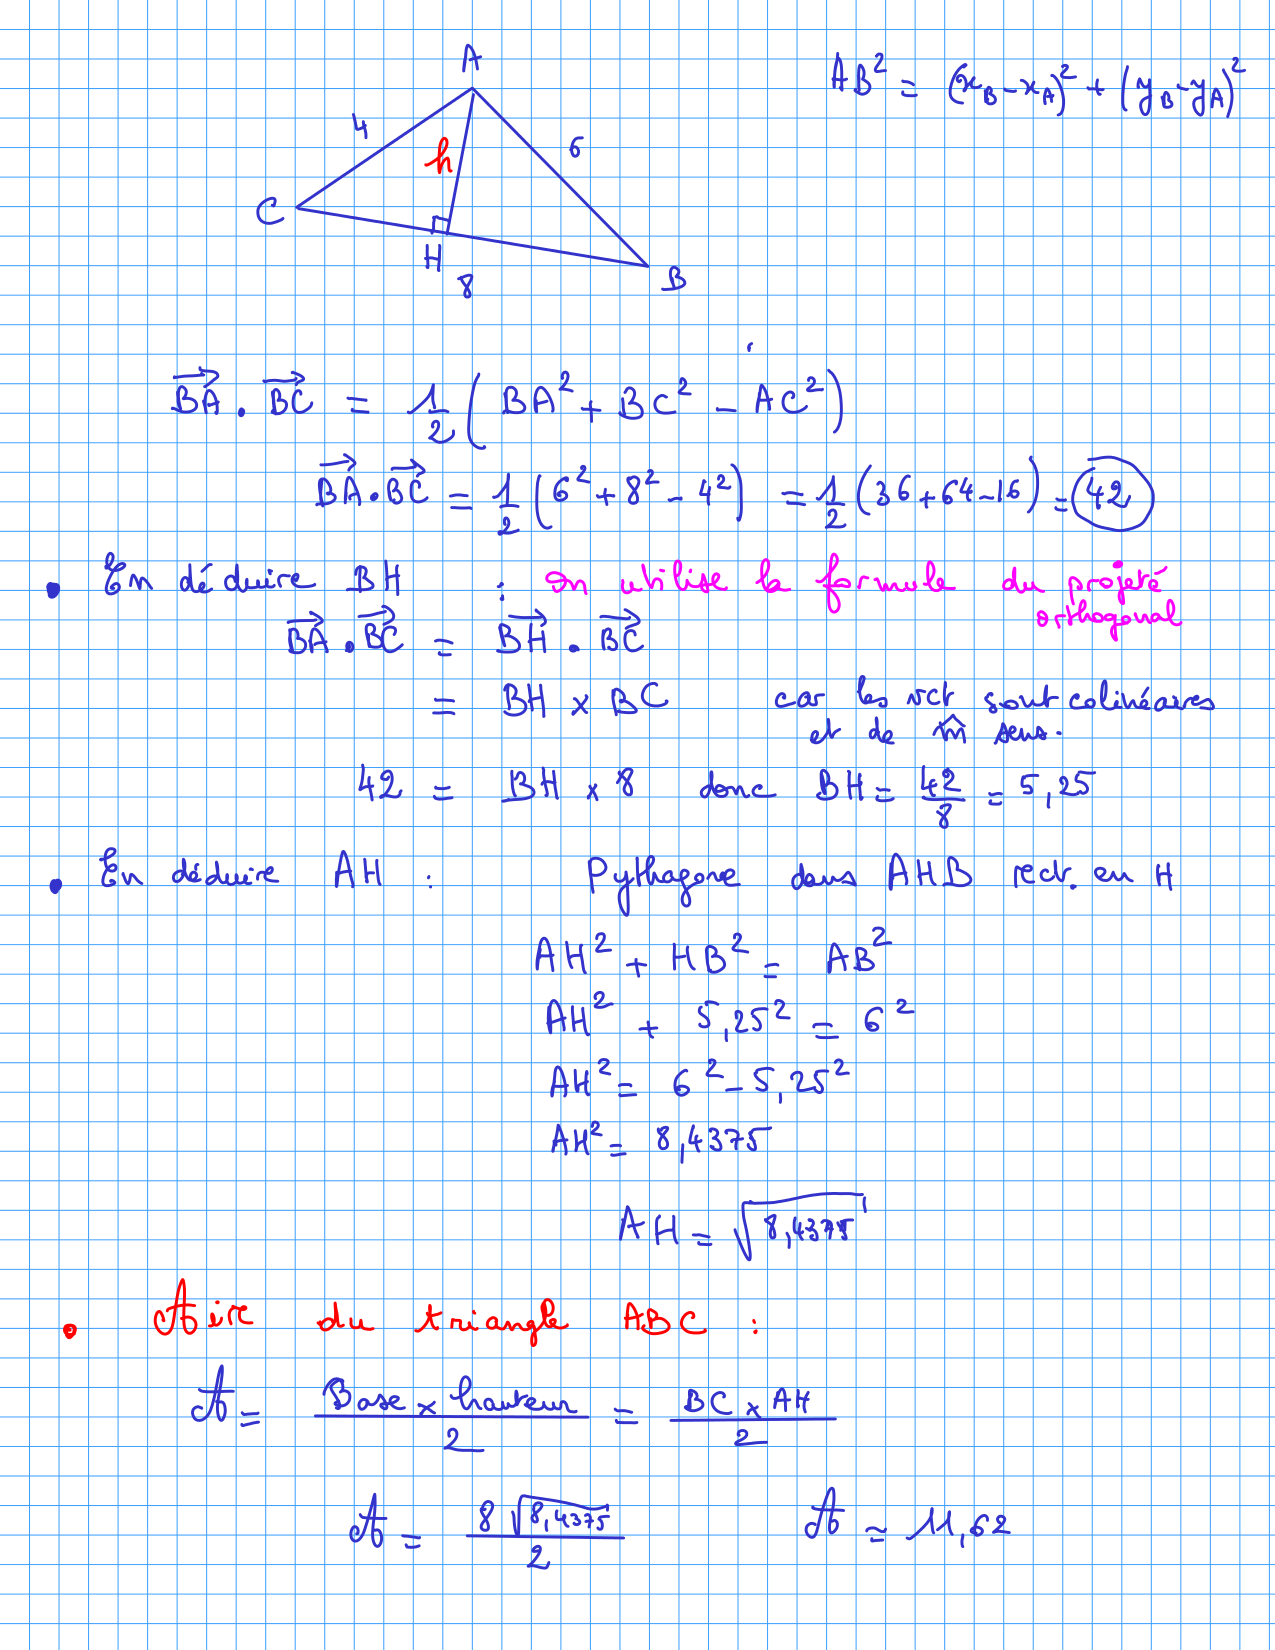 A
AB² = (x_B - x_A)² + (y_B - y_A)²
4
h
6
C
H
8
B
BA⃗ . BC⃗ = 1/2 (BA² + BC² - AC²)
BA⃗ . BC⃗ = 1/2 (6² + 8² - 4²) = 1/2 (36 + 64 - 16) = 42
• En déduire BH : On utilise la formule du projeté
orthogonal
BA⃗ . BC⃗ = BH⃗ . BC⃗
= BH × BC car les vct sont colinéaires
et de m̂ sens.
42 = BH × 8 donc BH = 42/8 = 5,25
• En déduire AH : Pythagore dans AHB rect. en H
AH² + HB² = AB²
AH² + 5,25² = 6²
AH² = 6² - 5,25²
AH² = 8,4375
AH = √8,4375
• Aire du triangle ABC :
A = (Base × hauteur)/2 = (BC × AH)/2
A = 8√8,4375/2 A ≃ 11,62